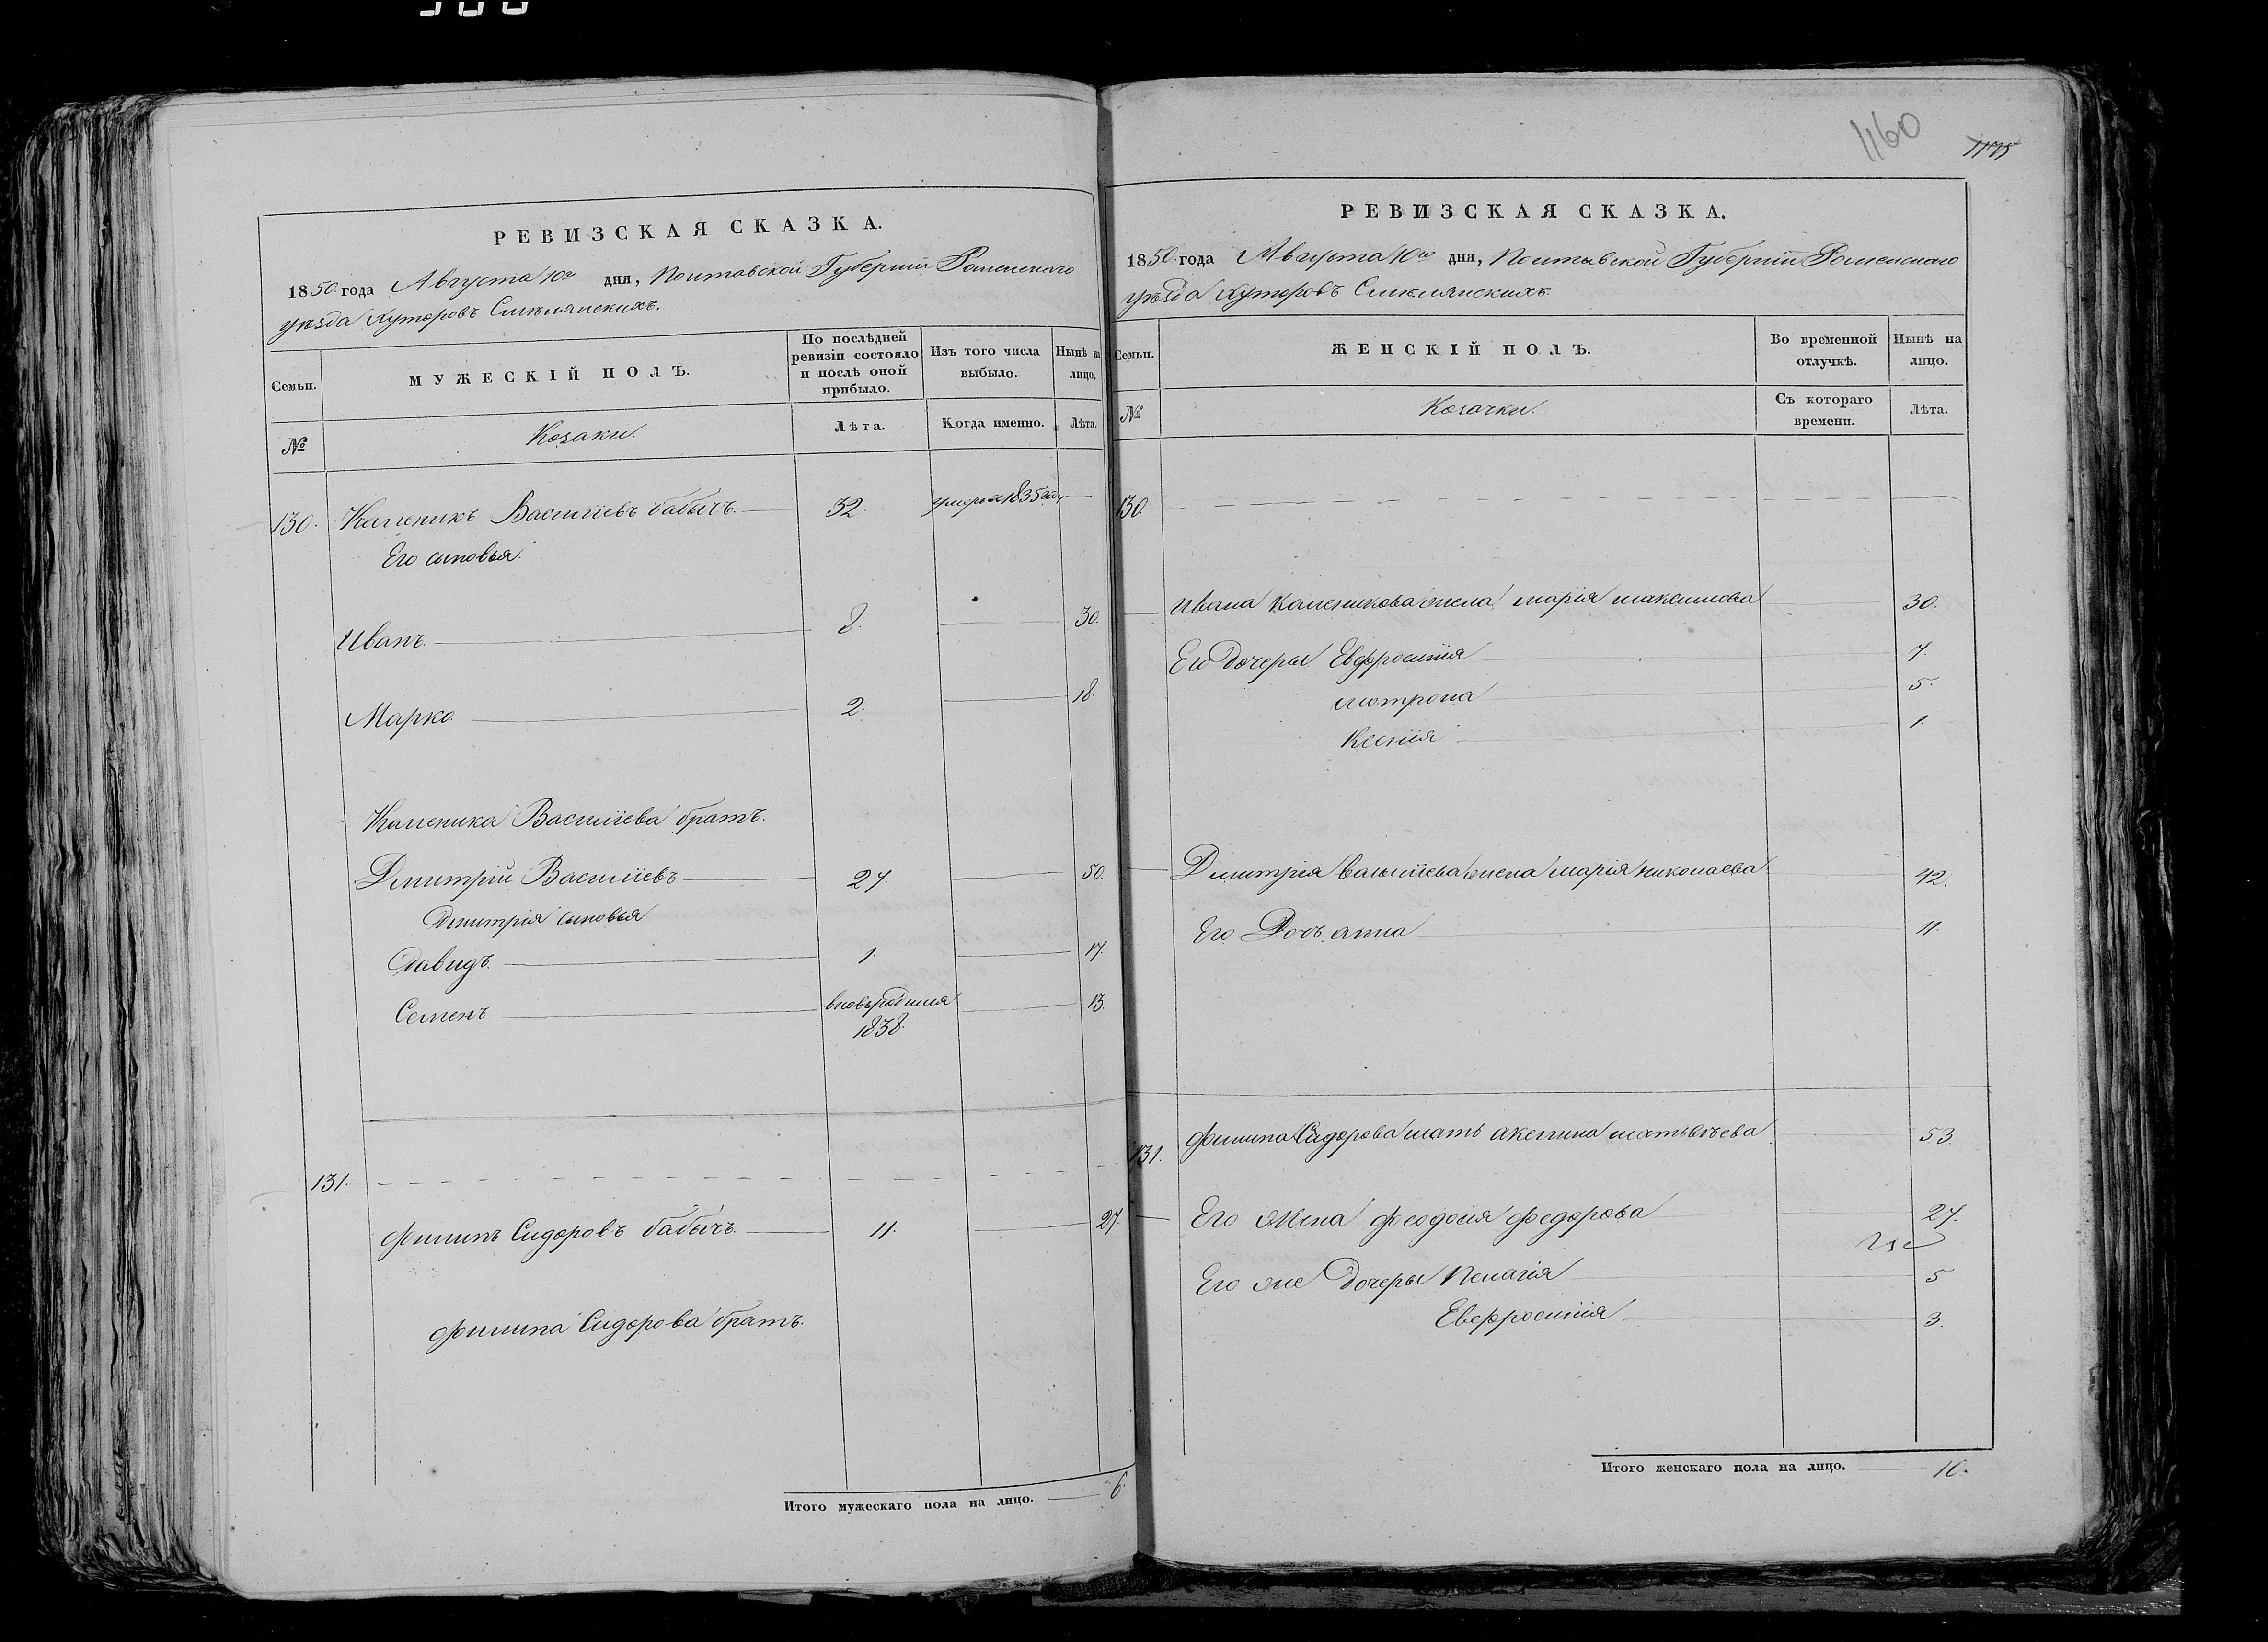 1160
1175
РЕВИЗСКАЯ СКАЗКА.
1850 года Августа 10го дня, Полтавской Губернии Роменского
уѣзда Хуторовъ Смѣлянскихъ.
Семьи.
МУЖЕСКІЙ ПОЛЪ.
По послѣдней ревизіи состояло и послѣ оной прибыло.
Изъ того числа выбыло.
Нынѣ на лицо.
№
Козаки.
Лѣта.
Когда именно.
Лѣта.
130. Каленикъ Василіевъ бабичъ. 32. умеръ въ 1835 году
Его сыновья.
Иванъ. 8. 30.
Марко. 2. 18.
Каленика Василіева братъ.
Дмитрій Василіевъ 27. 50.
Дмитрія сыновья
Давидъ. 1 17.
Семенъ вновьродился 13.
1838.
131.
Филипъ Сидоровъ бабичъ. 11. 27.
Филипа Сидорова братъ.
Итого мужескаго пола на лицо. 6.
РЕВИЗСКАЯ СКАЗКА.
1850 года Августа 10го дня, Полтавской Губерніи Роменского
уѣзда Хуторовъ Смѣлянскихъ.
Семьи.
ЖЕНСКІЙ ПОЛЪ.
Во временной отлучкѣ.
Нынѣ на лицо.
№
Козачки.
Съ котораго времени.
Лѣта.
130.
Ивана Каленикова жена марія максимова 30.
Его дочеры Евфросинія 7.
мотрона 5.
Ксенія 1.
Димитрія Василіева жена марія николаева 42.
Его Дочъ анна 11.
131. Филипа Сидорова мать акелина матьвѣева 53.
Его жена феодосія федорова 27.
Его же дочеры Пелагія 5
Евефросинія 3.
Итого женскаго пола на лицо. 10.